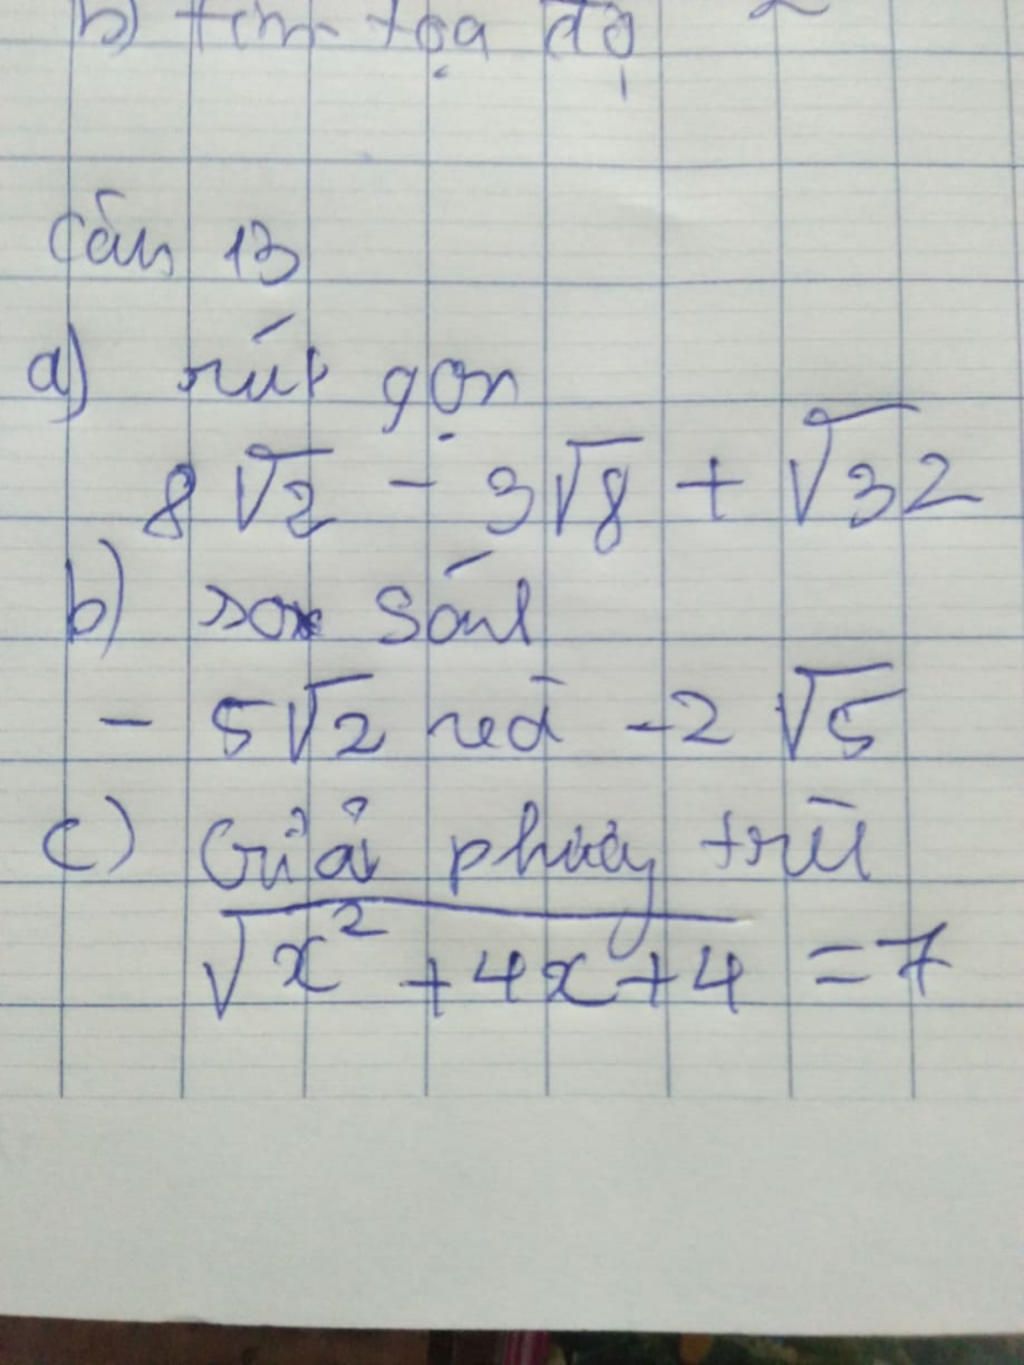 b) tìm tọa độ
Câu 13
a) rút gọn
8√2 - 3√8 + √32
b) so sánh
- 5√2 và -2√5
c) Giải phương trình
√(x² + 4x + 4) = 7